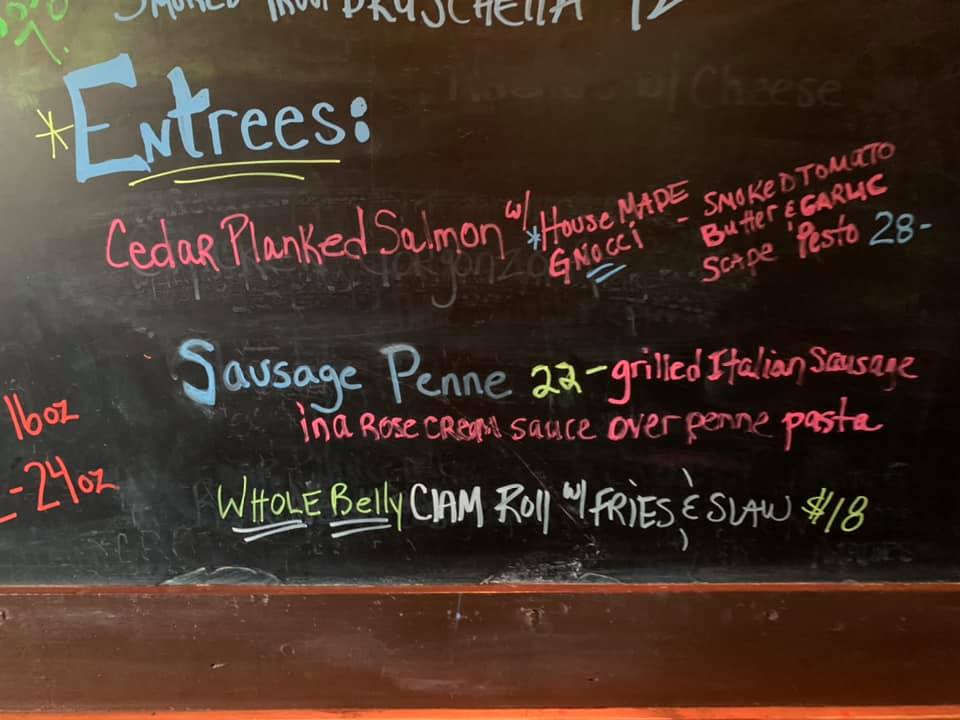 SMOKED TROUT BRUSCHETTA 12
*Entrees:
w/ Cheese
Cedar Planked Salmon w/ *House MADE Gnocci - SMOKED TOMATO
Butter & GARLIC
Scape Pesto 28-
Sausage Penne 22 - grilled Italian Sausage
in a Rose cream sauce over penne pasta
16oz
- 24oz
Whole Belly Clam Roll w/ FRIES & SLAW $18